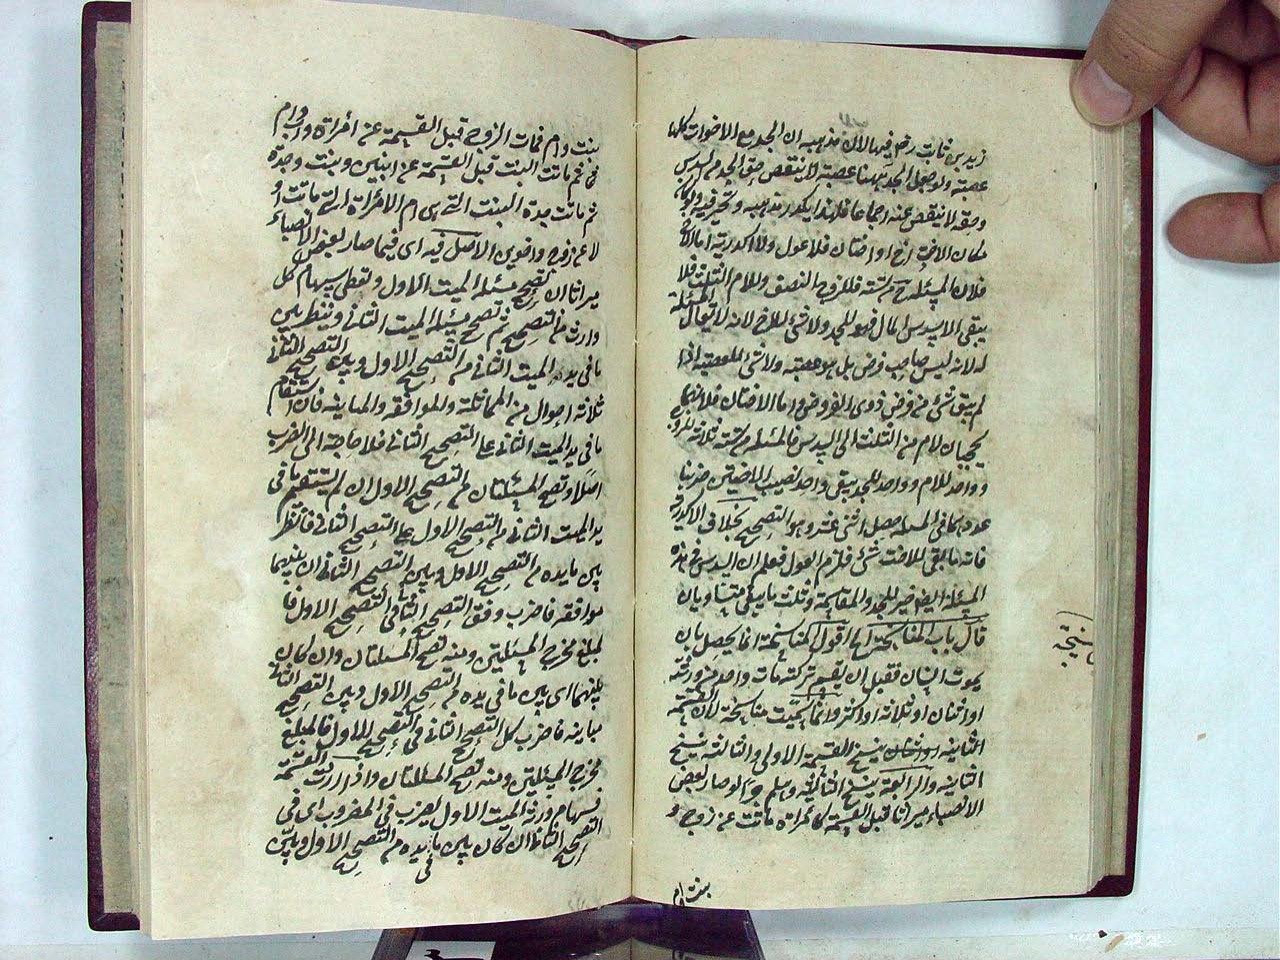 زيد بن ثابت رضى فيها لان مذهبه ان الجد مع الاخوات كلها
عصبة ولو جعل الجد ههنا عصبة لانتقص حق الجد من السدس
وحقه لا ينقص عنه اجماعا فلهذا يكدر مذهبه وتحير فيه ولو كان
مكان الاخت اخ او اختان فلا عول ولا اكدرية اما الاخ
فلان المسئلة ح من ستة فللزوج النصف وللام الثلث فلا
يبقى الا سدس المال فهو للجد ولا شئ للاخ لانه لا تعال المسئلة
له لانه ليس صاحب فرض بل هو عصبة ولا شئ للعصبة اذا
لم يبق شئ من فرض ذوى الفروض واما الاختان فلانهما
يحجبان الام من الثلث الى السدس فالمسئلة من ستة ثلاثة للزوج
وواحد للام وواحد للجد يبقى واحد نصيب الاختين ضربنا
عددهما فى المسئلة حصل اثنى عشر وهو التصحيح بخلاف الاكدرية
فانه ما بقى للاخت شئ فلزم العول فعلم ان السدس فى هذه
المسئلة ايضا خير للجد والمقاسمة وثلث ما يبقى متساويان
قال باب المناسخة اقول المناسخة انما يحصل بان
يموت انسان فقبل ان يقسم تركته مات واحد من ورثته
او اثنان او ثلاثة او اكثر وانما سميت مناسخة لان القسمة
الثانية ينسخ القسمة الاولى والثالثة ينسخ
الثانية والرابعة ينسخ الثالثة وهلم جرا لو صار بعض
الانصباء ميراثا قبل القسمة كامراة ماتت عن زوج و
بنت وام
مناسخة
بنت وام فمات الزوج قبل القسمة عن امراة واب وام
ثم ماتت البنت قبل القسمة عن ابنين وبنت وجدة
ثم ماتت جدة البنت التى هى ام الامراة التى ماتت او
لا عن زوج واخوين الاصل فيه اى فيما صار بعض الانصباء
ميراثا ان تصحح مسئلة الميت الاول وتعطى سهام كل
وارث من التصحيح ثم تصحح مسئلة الميت الثانى وينظر بين
ما فى يد الميت الثانى من التصحيح الاول وبين التصحيح الثانى
ثلاثة احوال من المماثلة والموافقة والمباينة فان استقام
ما فى يد الميت الثانى على التصحيح الثانى فلا حاجة الى الضرب
اصلا وتصح المسئلتان من التصحيح الاول ان لم يستقيم ما فى
يد الميت الثانى من التصحيح الاول على التصحيح الثانى فانظر
بين ما يده من التصحيح الاول وبين التصحيح الثانى ان بينهما
موافقة فاضرب وفق التصحيح الثانى فى التصحيح الاول فا
لمبلغ مخرج المسئلتين ومنه تصح المسئلتان وان كان
بينهما اى بين ما فى يده من التصحيح الاول وبين التصحيح الثانى
مباينة فاضرب كل التصحيح الثانى فى التصحيح الاول فالمبلغ
مخرج المسئلتين ومنه تصح المسئلتان واذا اردت القسمة
فسهام ورثة الميت الاول يضرب فى المضروب اى فى
التصحيح الثانى ان كان بين ما يده من التصحيح الاول وبين
فى